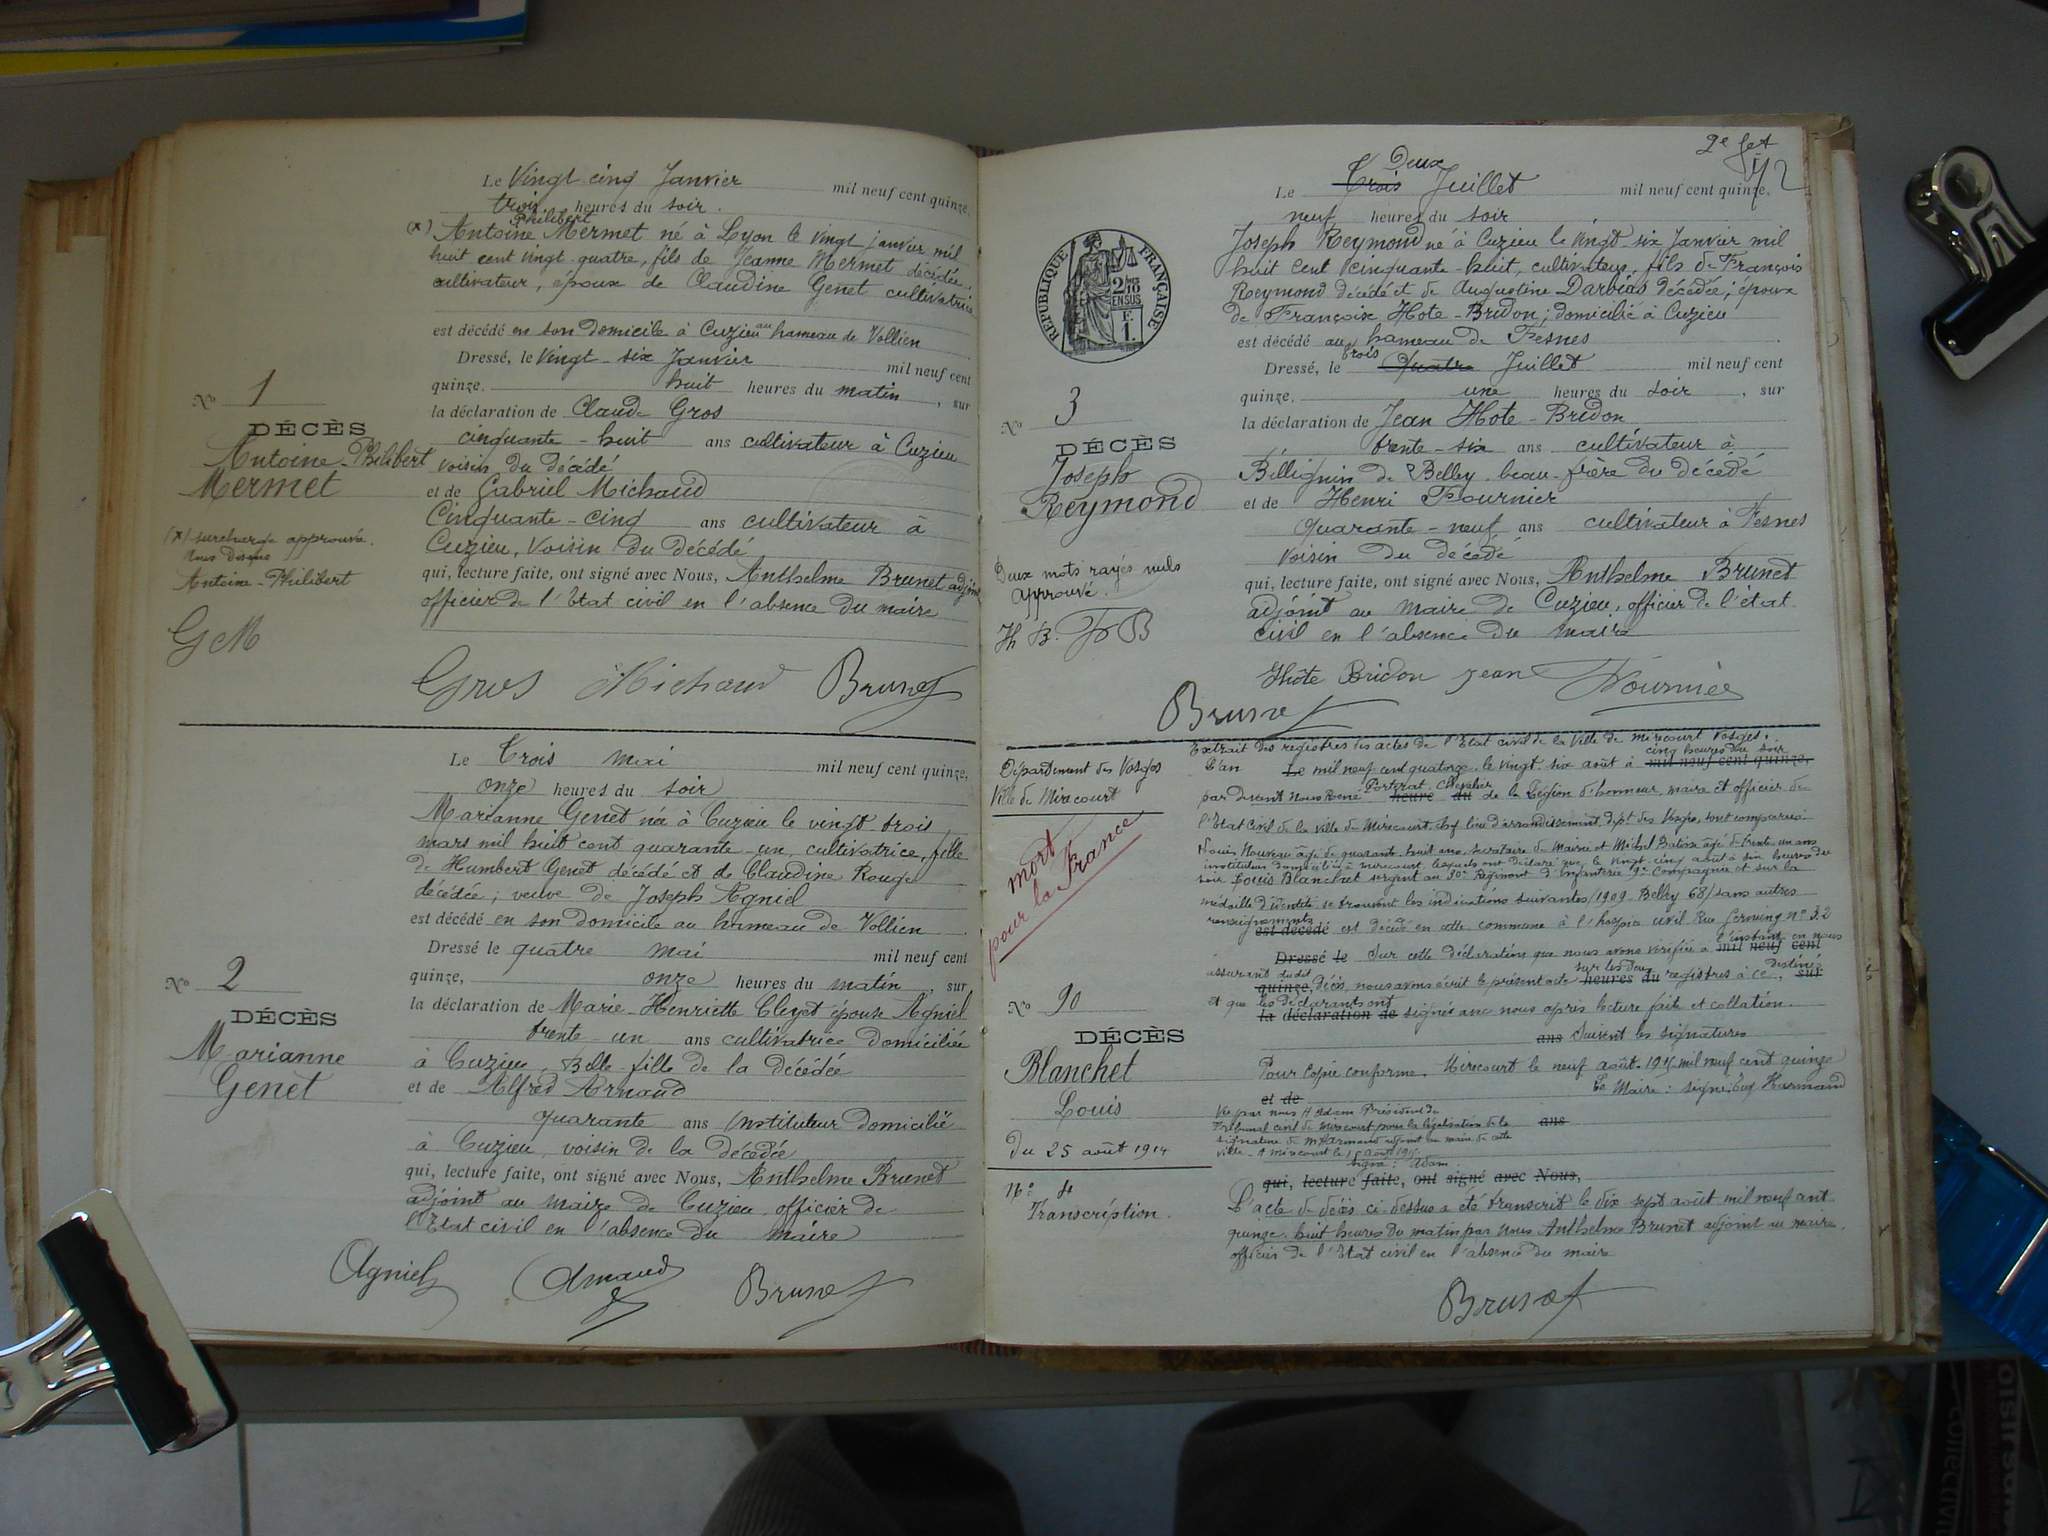 Le Vingt cinq Janvier mil neuf cent quinze,
trois heures du soir.
Philibert
(x) Antoine Mermet né à Lyon le vingt janvier mil
huit cent vingt quatre, fils de Jeanne Mermet décédée,
cultivateur, époux de Claudine Genet cultivatrice
est décédé en son domicile à Cuzieu au hameau de Vollien
Dressé, le vingt-six Janvier mil neuf cent
quinze, huit heures du matin, sur
la déclaration de Claude Gros
cinquante-huit ans cultivateur à Cuzieu
voisin du décédé
et de Gabriel Michaud
Cinquante-cinq ans cultivateur à
Cuzieu, Voisin du décédé
qui, lecture faite, ont signé avec Nous, Anthelme Brunet adjoint
officier de l'Etat civil en l'absence du maire
Gros Michaud Brunet
No 1
DÉCÈS
Antoine-Philibert
Mermet
(x) surcharge approuvée.
Antoine-Philibert
G M
Le Trois mai mil neuf cent quinze,
onze heures du soir
Marianne Genet née à Cuzieu le vingt trois
mars mil huit cent quarante-un, cultivatrice, fille
de Humbert Genet décédé et de Claudine Rouge
décédée; veuve de Joseph Agniel
est décédé en son domicile au hameau de Vollien
Dressé le quatre mai mil neuf cent
quinze, onze heures du matin, sur
la déclaration de Marie-Henriette Cleyet épouse Agniel
trente-un ans cultivatrice domiciliée
à Cuzieu, Belle-fille de la décédée
et de Alfred Arnaud
quarante ans Instituteur domicilié
à Cuzieu, voisin de la décédée
qui, lecture faite, ont signé avec Nous, Anthelme Brunet
adjoint au maire de Cuzieu, officier de
l'Etat civil en l'absence du maire
Agniel Arnaud Brunet
No 2
DÉCÈS
Marianne
Genet
2e
112
Deux
Le Trois Juillet mil neuf cent quinze,
neuf heures du soir
Joseph Reymond né à Cuzieu le vingt six Janvier mil
huit cent cinquante-huit, cultivateur, fils de François
Reymond décédé et de Augustine Darbias décédée; époux
de Françoise Hote-Bridon; domicilié à Cuzieu
est décédé au hameau de Fesnes
trois
Dressé, le Quatre Juillet mil neuf cent
quinze, une heures du soir, sur
la déclaration de Jean Hote-Bridon
trente-six ans cultivateur à
Billignin de Belley, beau-frère du décédé
et de Henri Fournier
quarante-neuf ans cultivateur à Fesnes
voisin du décédé
qui, lecture faite, ont signé avec Nous, Anthelme Brunet
adjoint au maire de Cuzieu, officier de l'état
civil en l'absence du maire
Hôte Bridon Jean Fournier
Brunet
RÉPUBLIQUE FRANÇAISE
2/10
EN SUS
F.
1.
No 3
DÉCÈS
Joseph
Reymond
Deux mots rayés nuls
approuvé.
H B. F B
Extrait des registres des actes de l'Etat civil de la Ville de Mirecourt Vosges.
cinq heures du soir
L'an Le mil neuf cent quatorze, le vingt six août à mil neuf cent quinze,
Porterat, Chevalier
par devant Nous René heure du de la Légion d'honneur, maire et officier de
l'Etat Civil de la ville de Mirecourt, chef lieu d'arrondissement, dept des Vosges, sont comparus
Louis Nouveau âgé de quarante huit ans, secrétaire de Mairie et Michel âgé de trente un ans
instituteur domiciliés à Mirecourt, lesquels ont déclaré que, le vingt-cinq août à six heures du
soir Louis Blanchet sergent au Régiment d'Infanterie 9e Compagnie et sur la
médaille d'identité se trouvent les indications suivantes (1909-Belley 68) sans autres
renseignements
est décédé est décédé en cette commune à l'hospice civil Rue Germiny no 32
l'instant en nous
Dressé le Sur cette déclaration que nous avons vérifiée à mil neuf cent
assurant dudit sur les deux destinés
quinze, décès, nous avons écrit le présent acte heures du registres à ce, sur
et que les déclarants ont
la déclaration de signés avec nous après lecture faite et collation.
ans Suivent les signatures
Pour copie conforme, Mirecourt le neuf août 1915 mil neuf cent quinze
Le Maire: signé: Harmand
et de
Vu par nous H Adam Président du
Tribunal civil de Mirecourt pour la légalisation de la
ans
signature de M Harmand adjoint au maire de cette
ville - A Mirecourt le août 1915
signé: Adam
qui, lecture faite, ont signé avec Nous,
L'acte de décès ci-dessus a été transcrit le dix sept août mil neuf cent
quinze, huit heures du matin par nous Anthelme Brunet adjoint au maire,
officier de l'Etat civil en l'absence du maire
Brunet
Département des Vosges
Ville de Mirecourt
mort
pour la France
No 90
DÉCÈS
Blanchet
Louis
du 25 août 1914
No 4
Transcription.